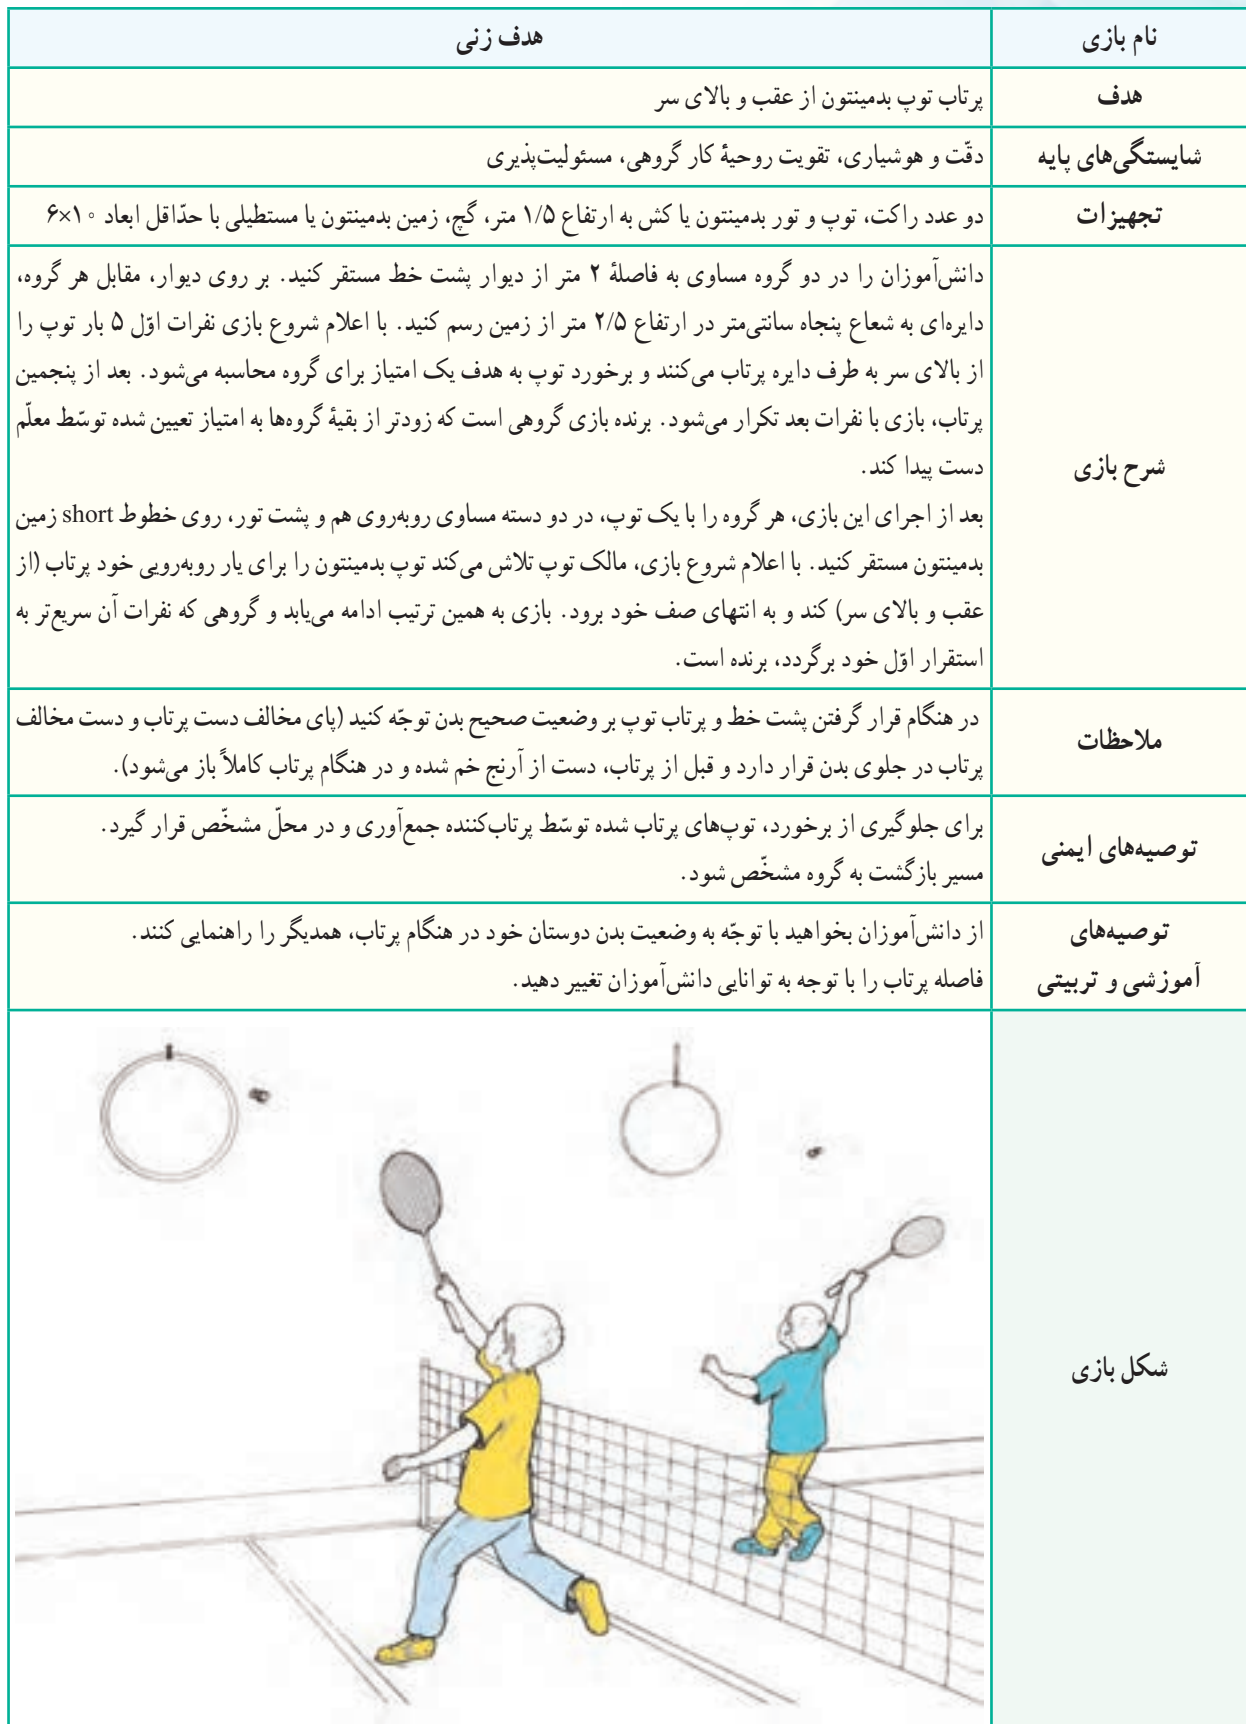 نام بازی
هدف زنی
هدف
پرتاب توپ بدمینتون از عقب و بالای سر
شایستگی‌های پایه
دقّت و هوشیاری، تقویت روحیهٔ کار گروهی، مسئولیت‌پذیری
تجهیزات
دو عدد راکت، توپ و تور بدمینتون یا کش به ارتفاع ۱/۵ متر، گچ، زمین بدمینتون یا مستطیلی با حدّاقل ابعاد ۱۰×۶
شرح بازی
دانش‌آموزان را در دو گروه مساوی به فاصلهٔ ۲ متر از دیوار پشت خط مستقر کنید. بر روی دیوار، مقابل هر گروه،
دایره‌ای به شعاع پنجاه سانتی‌متر در ارتفاع ۲/۵ متر از زمین رسم کنید. با اعلام شروع بازی نفرات اوّل ۵ بار توپ را
از بالای سر به طرف دایره پرتاب می‌کنند و برخورد توپ به هدف یک امتیاز برای گروه محاسبه می‌شود. بعد از پنجمین
پرتاب، بازی با نفرات بعد تکرار می‌شود. برنده بازی گروهی است که زودتر از بقیهٔ گروه‌ها به امتیاز تعیین شده توسّط معلّم
دست پیدا کند.
بعد از اجرای این بازی، هر گروه را با یک توپ، در دو دسته مساوی روبه‌روی هم و پشت تور، روی خطوط short زمین
بدمینتون مستقر کنید. با اعلام شروع بازی، مالک توپ تلاش می‌کند توپ بدمینتون را برای یار روبه‌رویی خود پرتاب (از
عقب و بالای سر) کند و به انتهای صف خود برود. بازی به همین ترتیب ادامه می‌یابد و گروهی که نفرات آن سریع‌تر به
استقرار اوّل خود برگردد، برنده است.
ملاحظات
در هنگام قرار گرفتن پشت خط و پرتاب توپ بر وضعیت صحیح بدن توجّه کنید (پای مخالف دست پرتاب و دست مخالف
پرتاب در جلوی بدن قرار دارد و قبل از پرتاب، دست از آرنج خم شده و در هنگام پرتاب کاملاً باز می‌شود).
توصیه‌های ایمنی
برای جلوگیری از برخورد، توپ‌های پرتاب شده توسّط پرتاب‌کننده جمع‌آوری و در محلّ مشخّص قرار گیرد.
مسیر بازگشت به گروه مشخّص شود.
توصیه‌های
آموزشی و تربیتی
از دانش‌آموزان بخواهید با توجّه به وضعیت بدن دوستان خود در هنگام پرتاب، همدیگر را راهنمایی کنند.
فاصله پرتاب را با توجه به توانایی دانش‌آموزان تغییر دهید.
شکل بازی